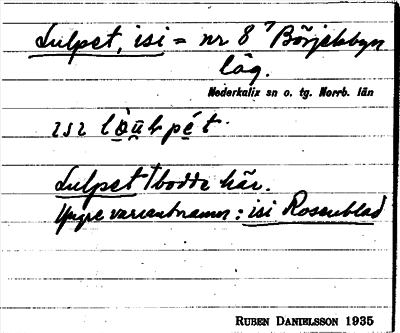 Lulpet, isi = nr 8⁷ Börjelsbyn
låg.
Nederkalix sn o. tg. Norrb. län
Lulpet † bodde här.
Yngre variantnamn: isi Rosenblad
RUBEN DANIELSSON 1935